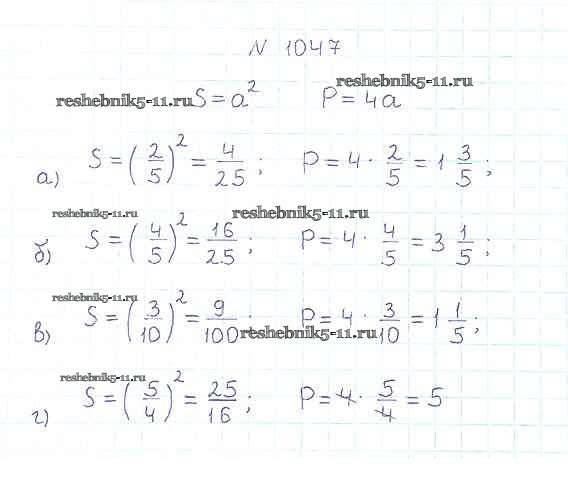 N 1047
reshebnik5-11.ru S = a² reshebnik5-11.ru P = 4a
а) S = (2/5)² = 4/25; P = 4 · 2/5 = 1 3/5;
reshebnik5-11.ru reshebnik5-11.ru
б) S = (4/5)² = 16/25; P = 4 · 4/5 = 3 1/5;
reshebnik5-11.ru
в) S = (3/10)² = 9/100; P = 4 · 3/10 = 1 1/5;
reshebnik5-11.ru
reshebnik5-11.ru
г) S = (5/4)² = 25/16; P = 4 · 5/4 = 5